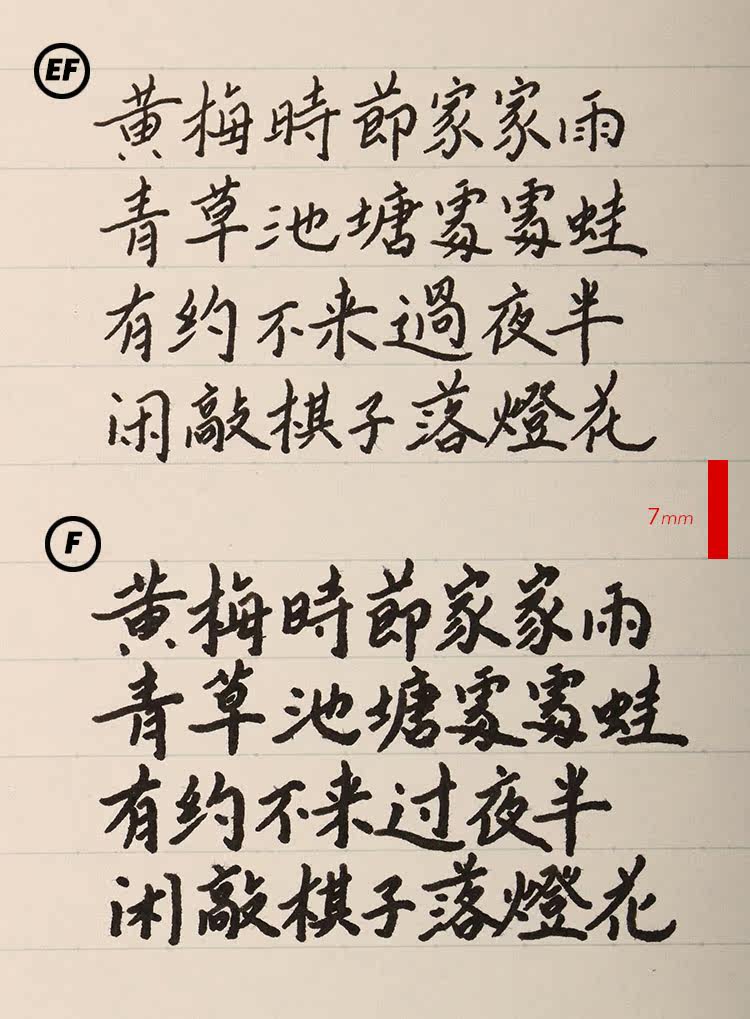 EF
黄梅時節家家雨
青草池塘處處蛙
有约不来過夜半
闲敲棋子落燈花
7mm
F
黄梅時節家家雨
青草池塘處處蛙
有约不来过夜半
闲敲棋子落燈花